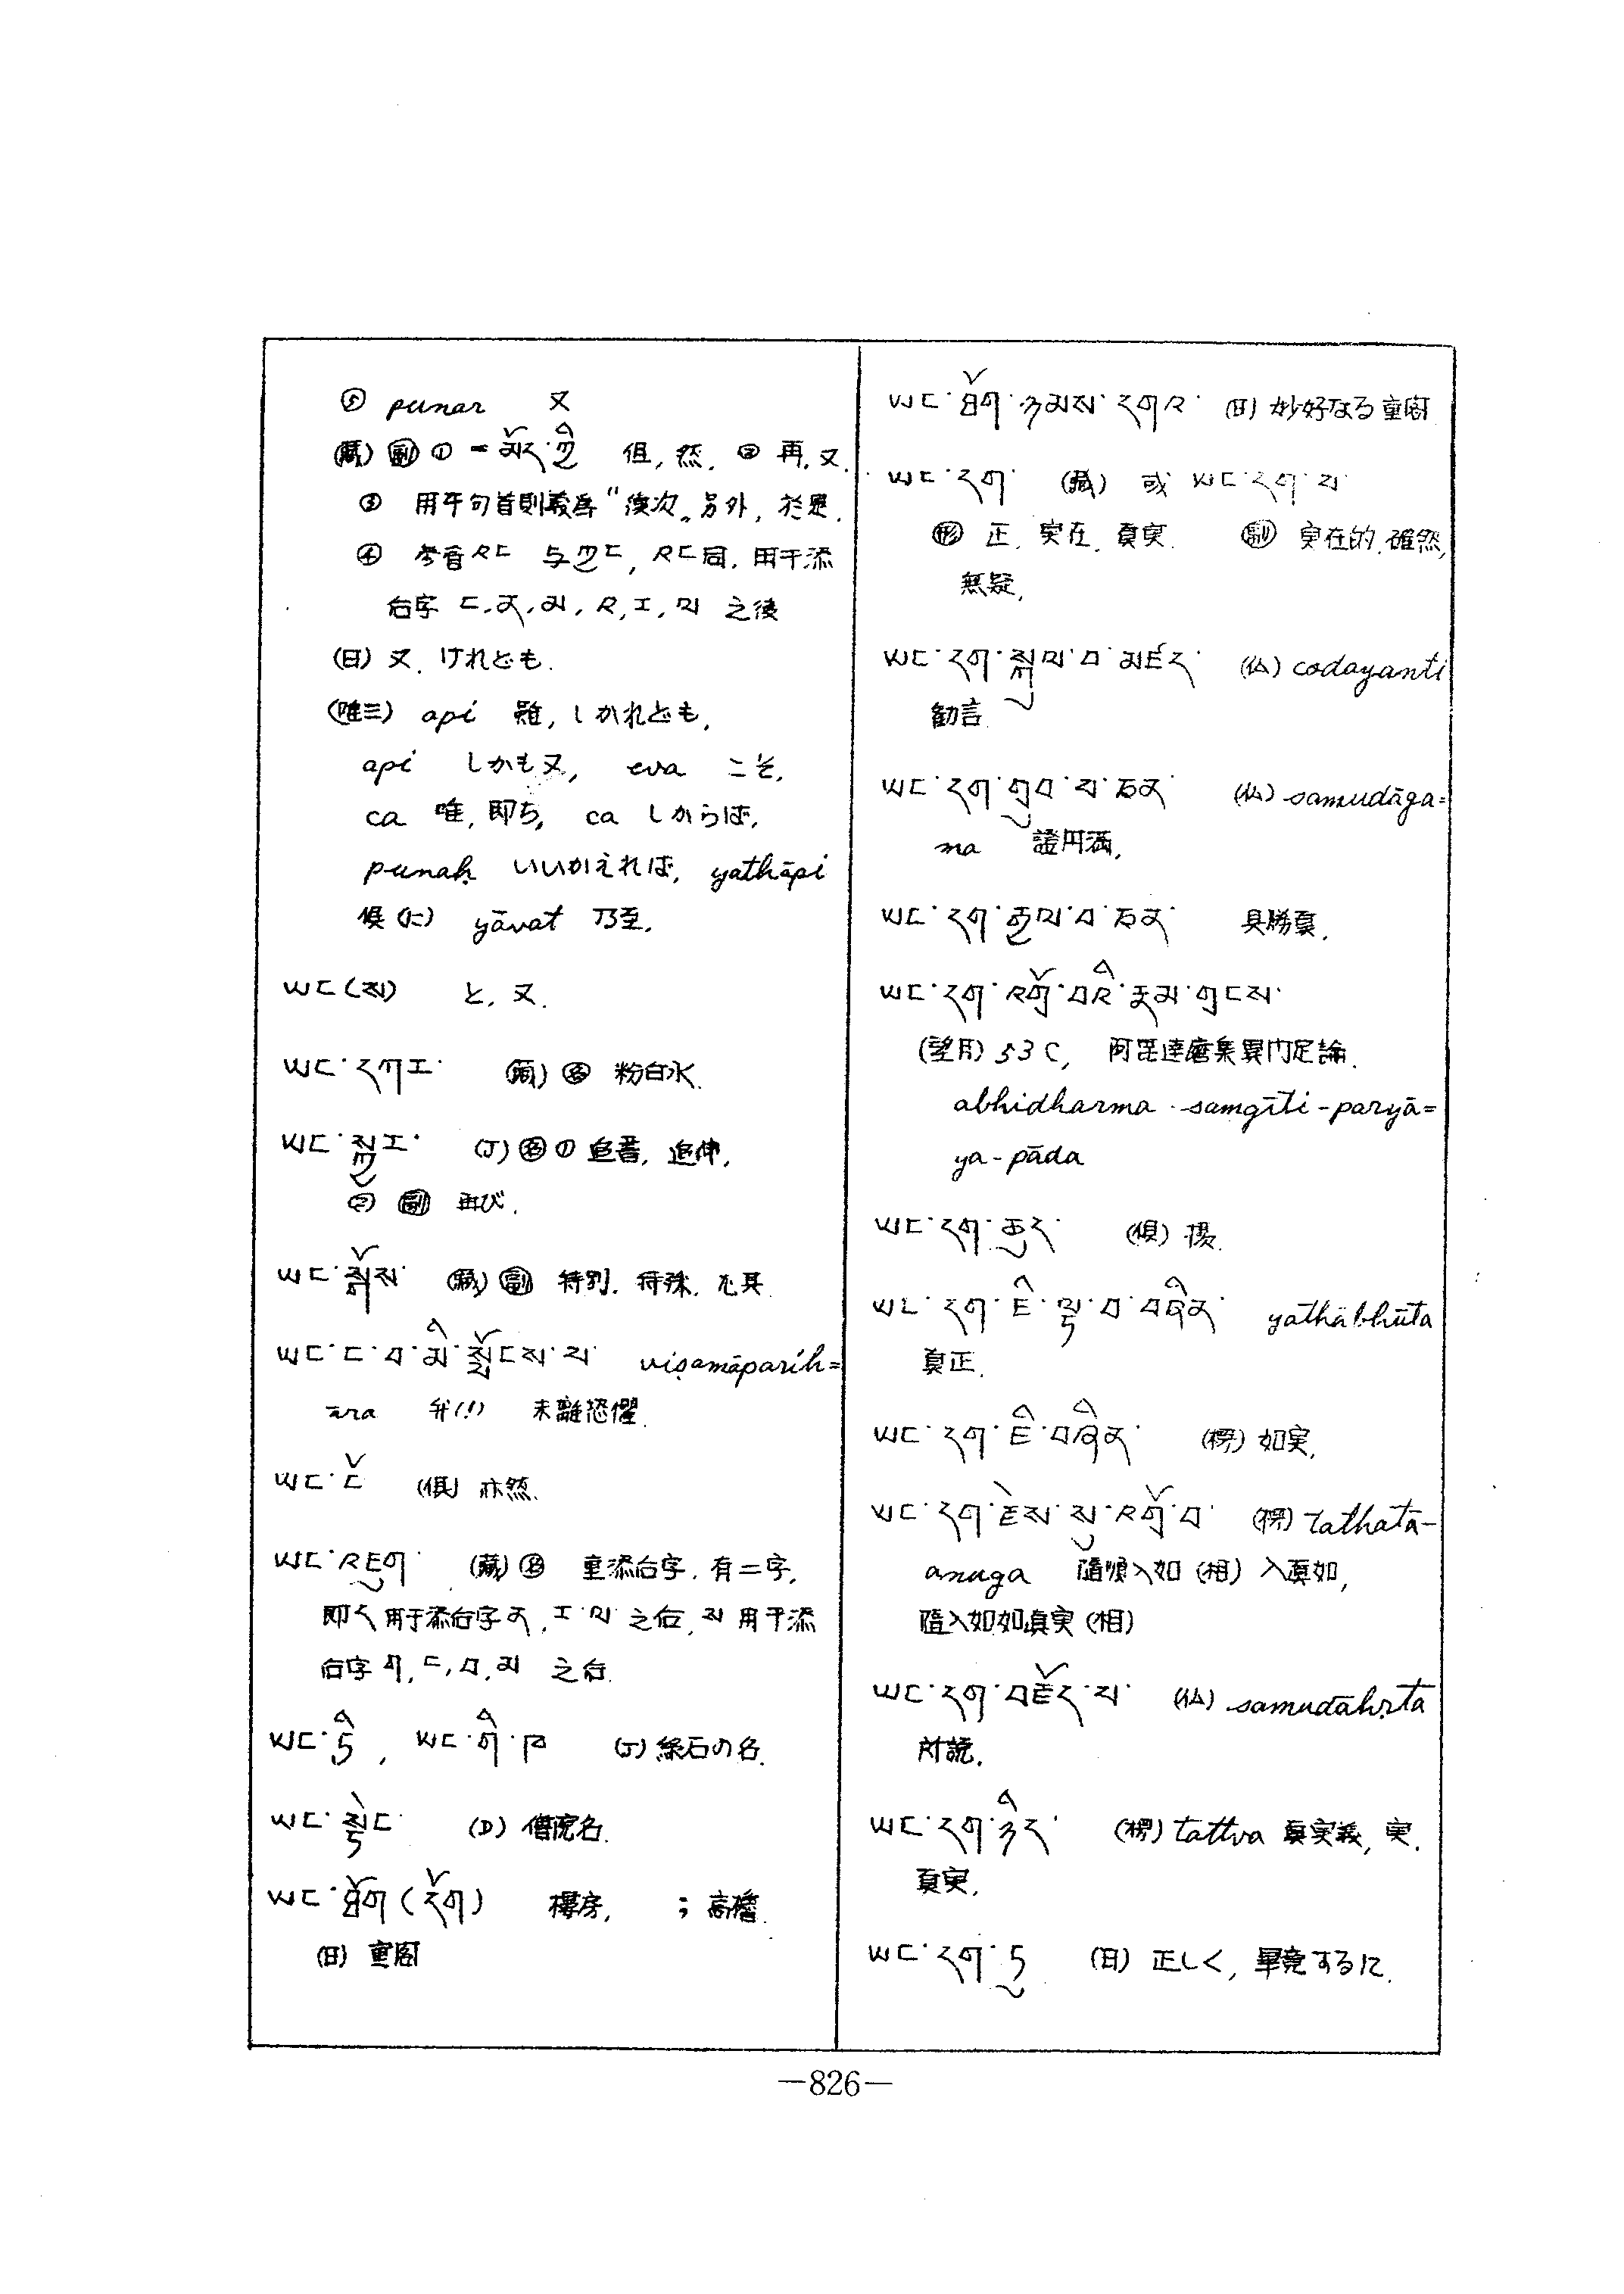 ⑤ punar 又
(藏) ㊄ ① = མོད་ཀྱི 但, 然. ② 再, 又.
③ 用于句首則義爲“後次„ 另外, 於是.
④ 参音 འང 与 ཀྱང, འང同, 用于添
后字 ང, ན, མ, འ, ར, ལ 之後
(日) 又, けれども.
(唯三) api 雖, しかれども,
api しかも又, eva こそ,
ca 唯, 即ち, ca しからば,
punaḥ いいかえれば, yathāpi
倶 (に) yāvat 乃至.
ཡང(ས) と, 又.
ཡང་དཀར་ (藏) 名 粉白水.
ཡང་སྐྱར་ (J) 名 ①
② 副 再び.
ཡང་སྒོས་ (藏) 副 特別. 特殊. 尤其
ཡང་ང་བ་མི་སྤོངས་པ་ viṣamāparih=
āra 弁(!) 未離恐懼.
ཡང་ངོ (倶) 亦然.
ཡང་འཇུག་ (藏) 名 重添后字. 有二字,
即ད用于添后字ན, ར་ལ་之后, ས用于添
后字ག, ང, བ, མ 之后.
ཡང་ཏི, ཡང་གི་ཁ (J) 緑石の名.
ཡང་སྟེང་ (D) 僧院名.
ཡང་ཐོག (དོག) 樓房, ; 高樓.
(日) 重閣
ཡང་ཐོག་ཉམས་དགའ་ (日) 妙好なる重閣
ཡང་དག་ (藏) 或 ཡང་དག་པ་
形 正, 実在, 真実. 副 実在的, 確然,
無疑,
ཡང་དག་སྐུལ་བ་མཛད་ (仏) codayanti
勧言.
ཡང་དག་གྲུབ་པ་ཅན་ (仏) samudāga=
ma 證円満,
ཡང་དག་རྒྱལ་བ་ཅན་ 具勝真.
ཡང་དག་འགྲོ་བའི་རྣམ་གྲངས་
(望月) 53 C, 阿毘達磨集異門足論.
abhidharma - samgīti - paryā=
ya - pāda
ཡང་དག་ཆུད་ (倶) 攝.
ཡང་དག་ཇི་ལྟ་བ་བཞིན་ yathābhūta
真正.
ཡང་དག་ཇི་བཞིན་ (楞) 如実,
ཡང་དག་ཇེས་སུ་འགྲོ་བ་ (楞) tathatā-
anuga 隨順入如 (相) 入真如,
隨入如如真実 (相)
ཡང་དག་བརྗོད་པ་ (仏) samudāhṛta
対読.
ཡང་དག་ཉིད་ (楞) tattva 真実義, 実.
真実.
ཡང་དག་ཏུ (日) 正しく, 畢竟するに.
—826—